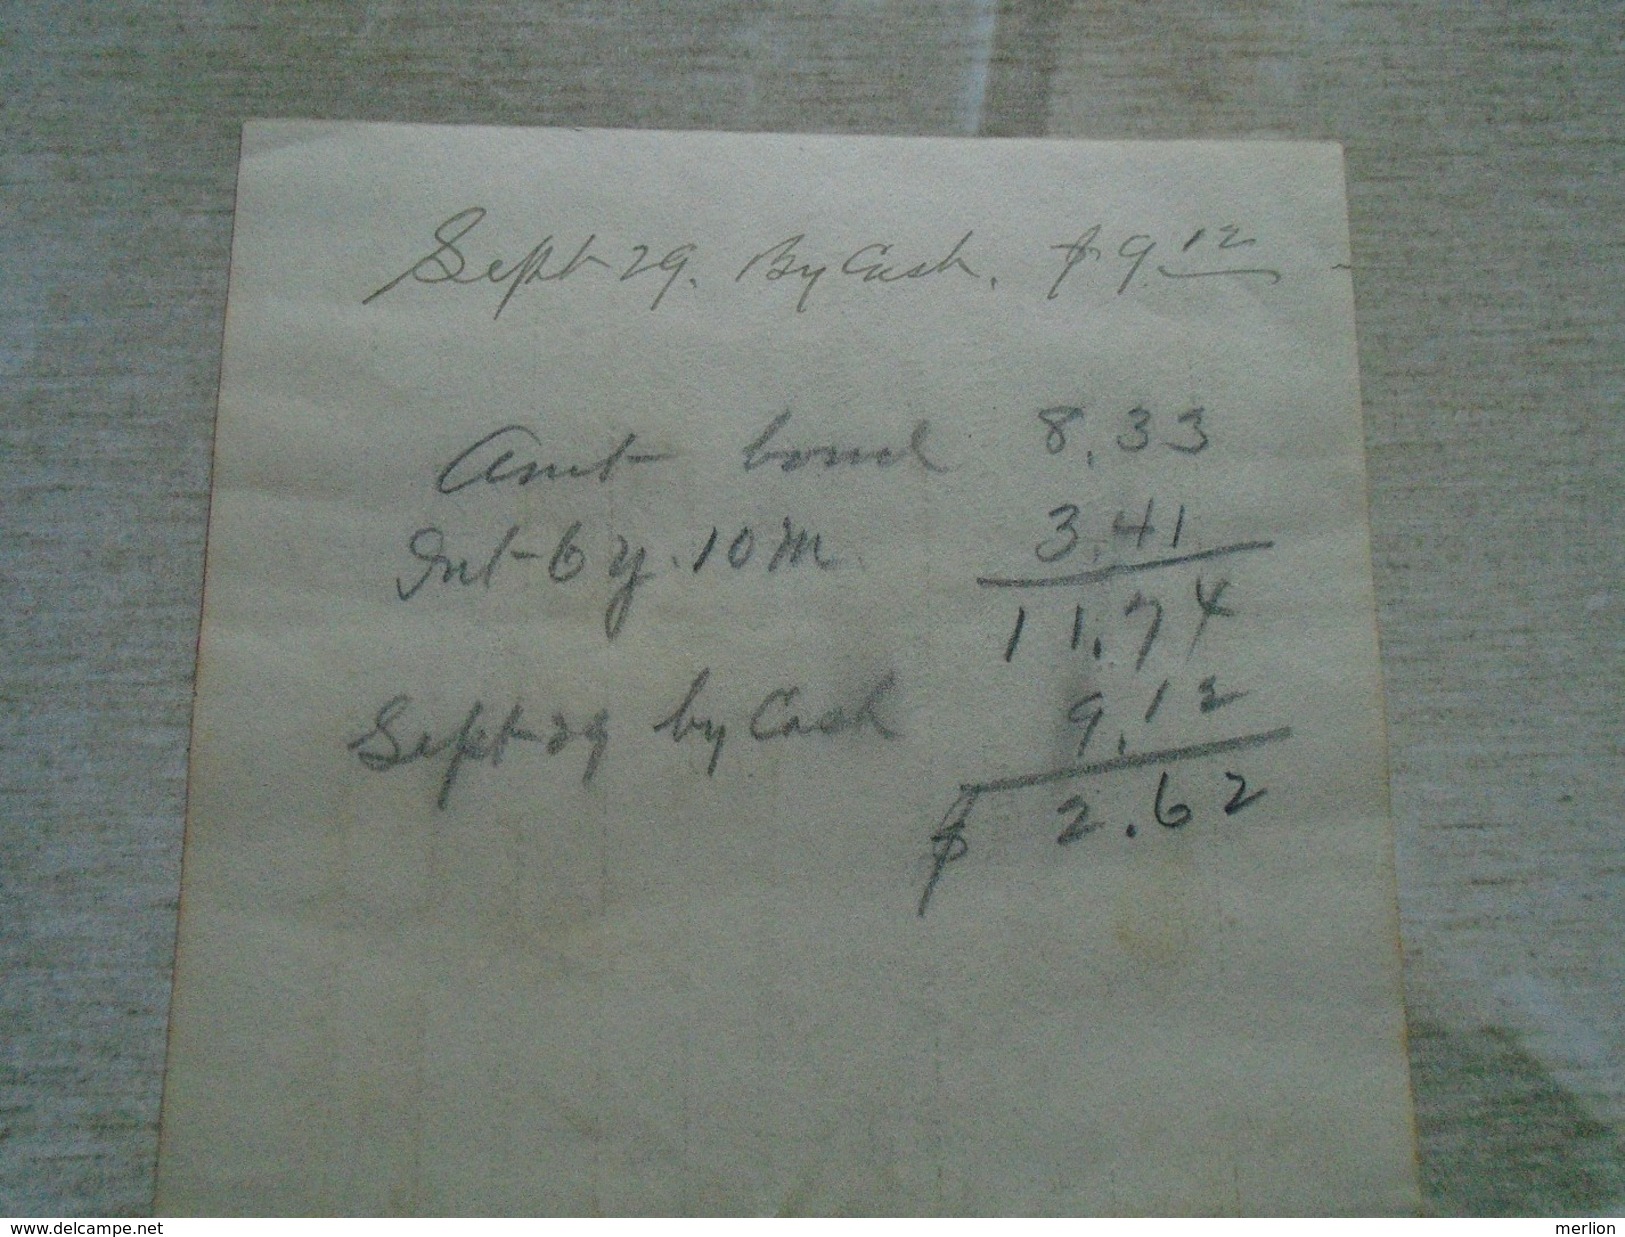 Sept 29. By Cash. $9.12
Amt bond 8.33
Int 6 y. 10 M. 3.41
11.74
Sept 29 by Cash 9.12
$ 2.62
www.delcampe.net
merlion